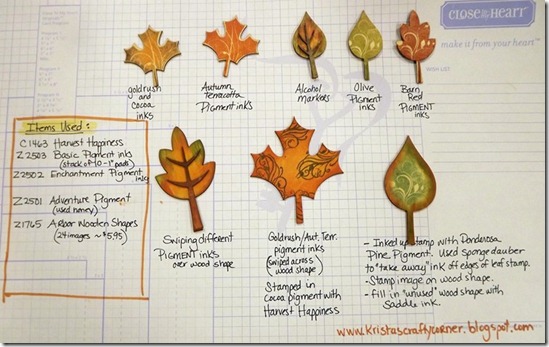 CLOSE to my HEART
make it from your heart™
goldrush
and
cocoa
inks
Autumn
terracotta
Pigment inks
Alcohol
markers
Olive
Pigment
inks
Barn
Red
Pigment
inks
Items Used:
C1463 Harvest Happiness
Z2503 Basic Pigment inks
(stack of 10 - 1" pads)
Z2502 Enchantment Pigment
inks
Z2501 Adventure Pigment
(used honey)
Z1765 Arbor Wooden Shapes
(24 images ~ $5.95)
Swiping different
Pigment inks
over wood shape
Goldrush/Aut. Terr.
pigment inks
(swiped across
wood shape)
Stamped in
Cocoa pigment with
Harvest Happiness
- Inked up stamp with Ponderosa
Pine Pigment. Used sponge dauber
to "take away" ink off edges of leaf stamp.
- Stamp image on wood shape.
- Fill in "unused" wood shape with
Saddle ink.
www.kristascraftycorner.blogspot.com